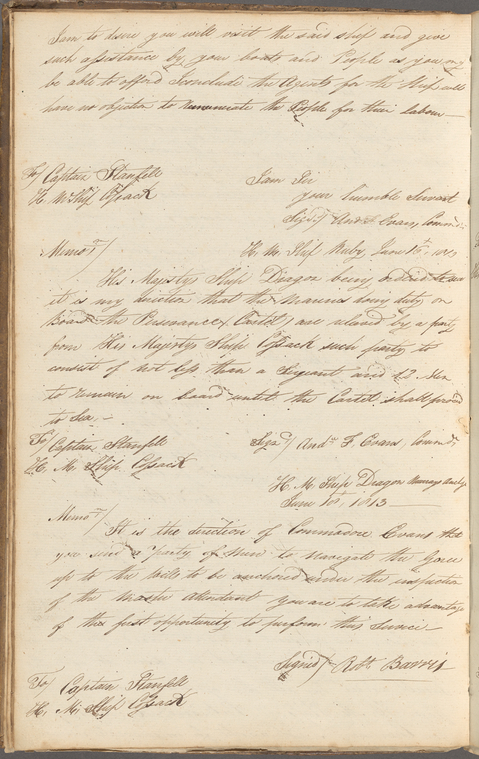 I am to desire you will visit the said ship and give
such assistance by your boats and People as you may
be able to afford I conclude the Agents for the Ship will
have no objection to remunerate the People for their labour
I am Sir
To/ Captain Stanfell
your humble Servant
H. M. Ship Cossack
Sigd/ Andw F. Evans, Commre
Memo/ H. M. Ship Ruby, June 16th, 1813
His Majesty's Ship Dragon being ordered to sea
it is my direction that the Marines doing duty on
Board the Cartel are reliev'd by a party
from His Majesty's Ship Cossack such party to
consist of not less than a Sergeant and 12 Men
to remain on board until the Cartel shall proceed
to Sea.
To/ Captain Stanfell Signd/ Andw F. Evans, Commre
H. M. Ship Cossack
H. M. Ship Dragon
June 1813
Memo/
It is the direction of Commodore Evans that
you send a party of Men to navigate the
up to the to be anchored under the inspection
of the Master Attendant you are to take advantage
of the first opportunity to perform this Service
Signed/ Robt Barrie
To/ Captain Stanfell
H. M. Ship Cossack